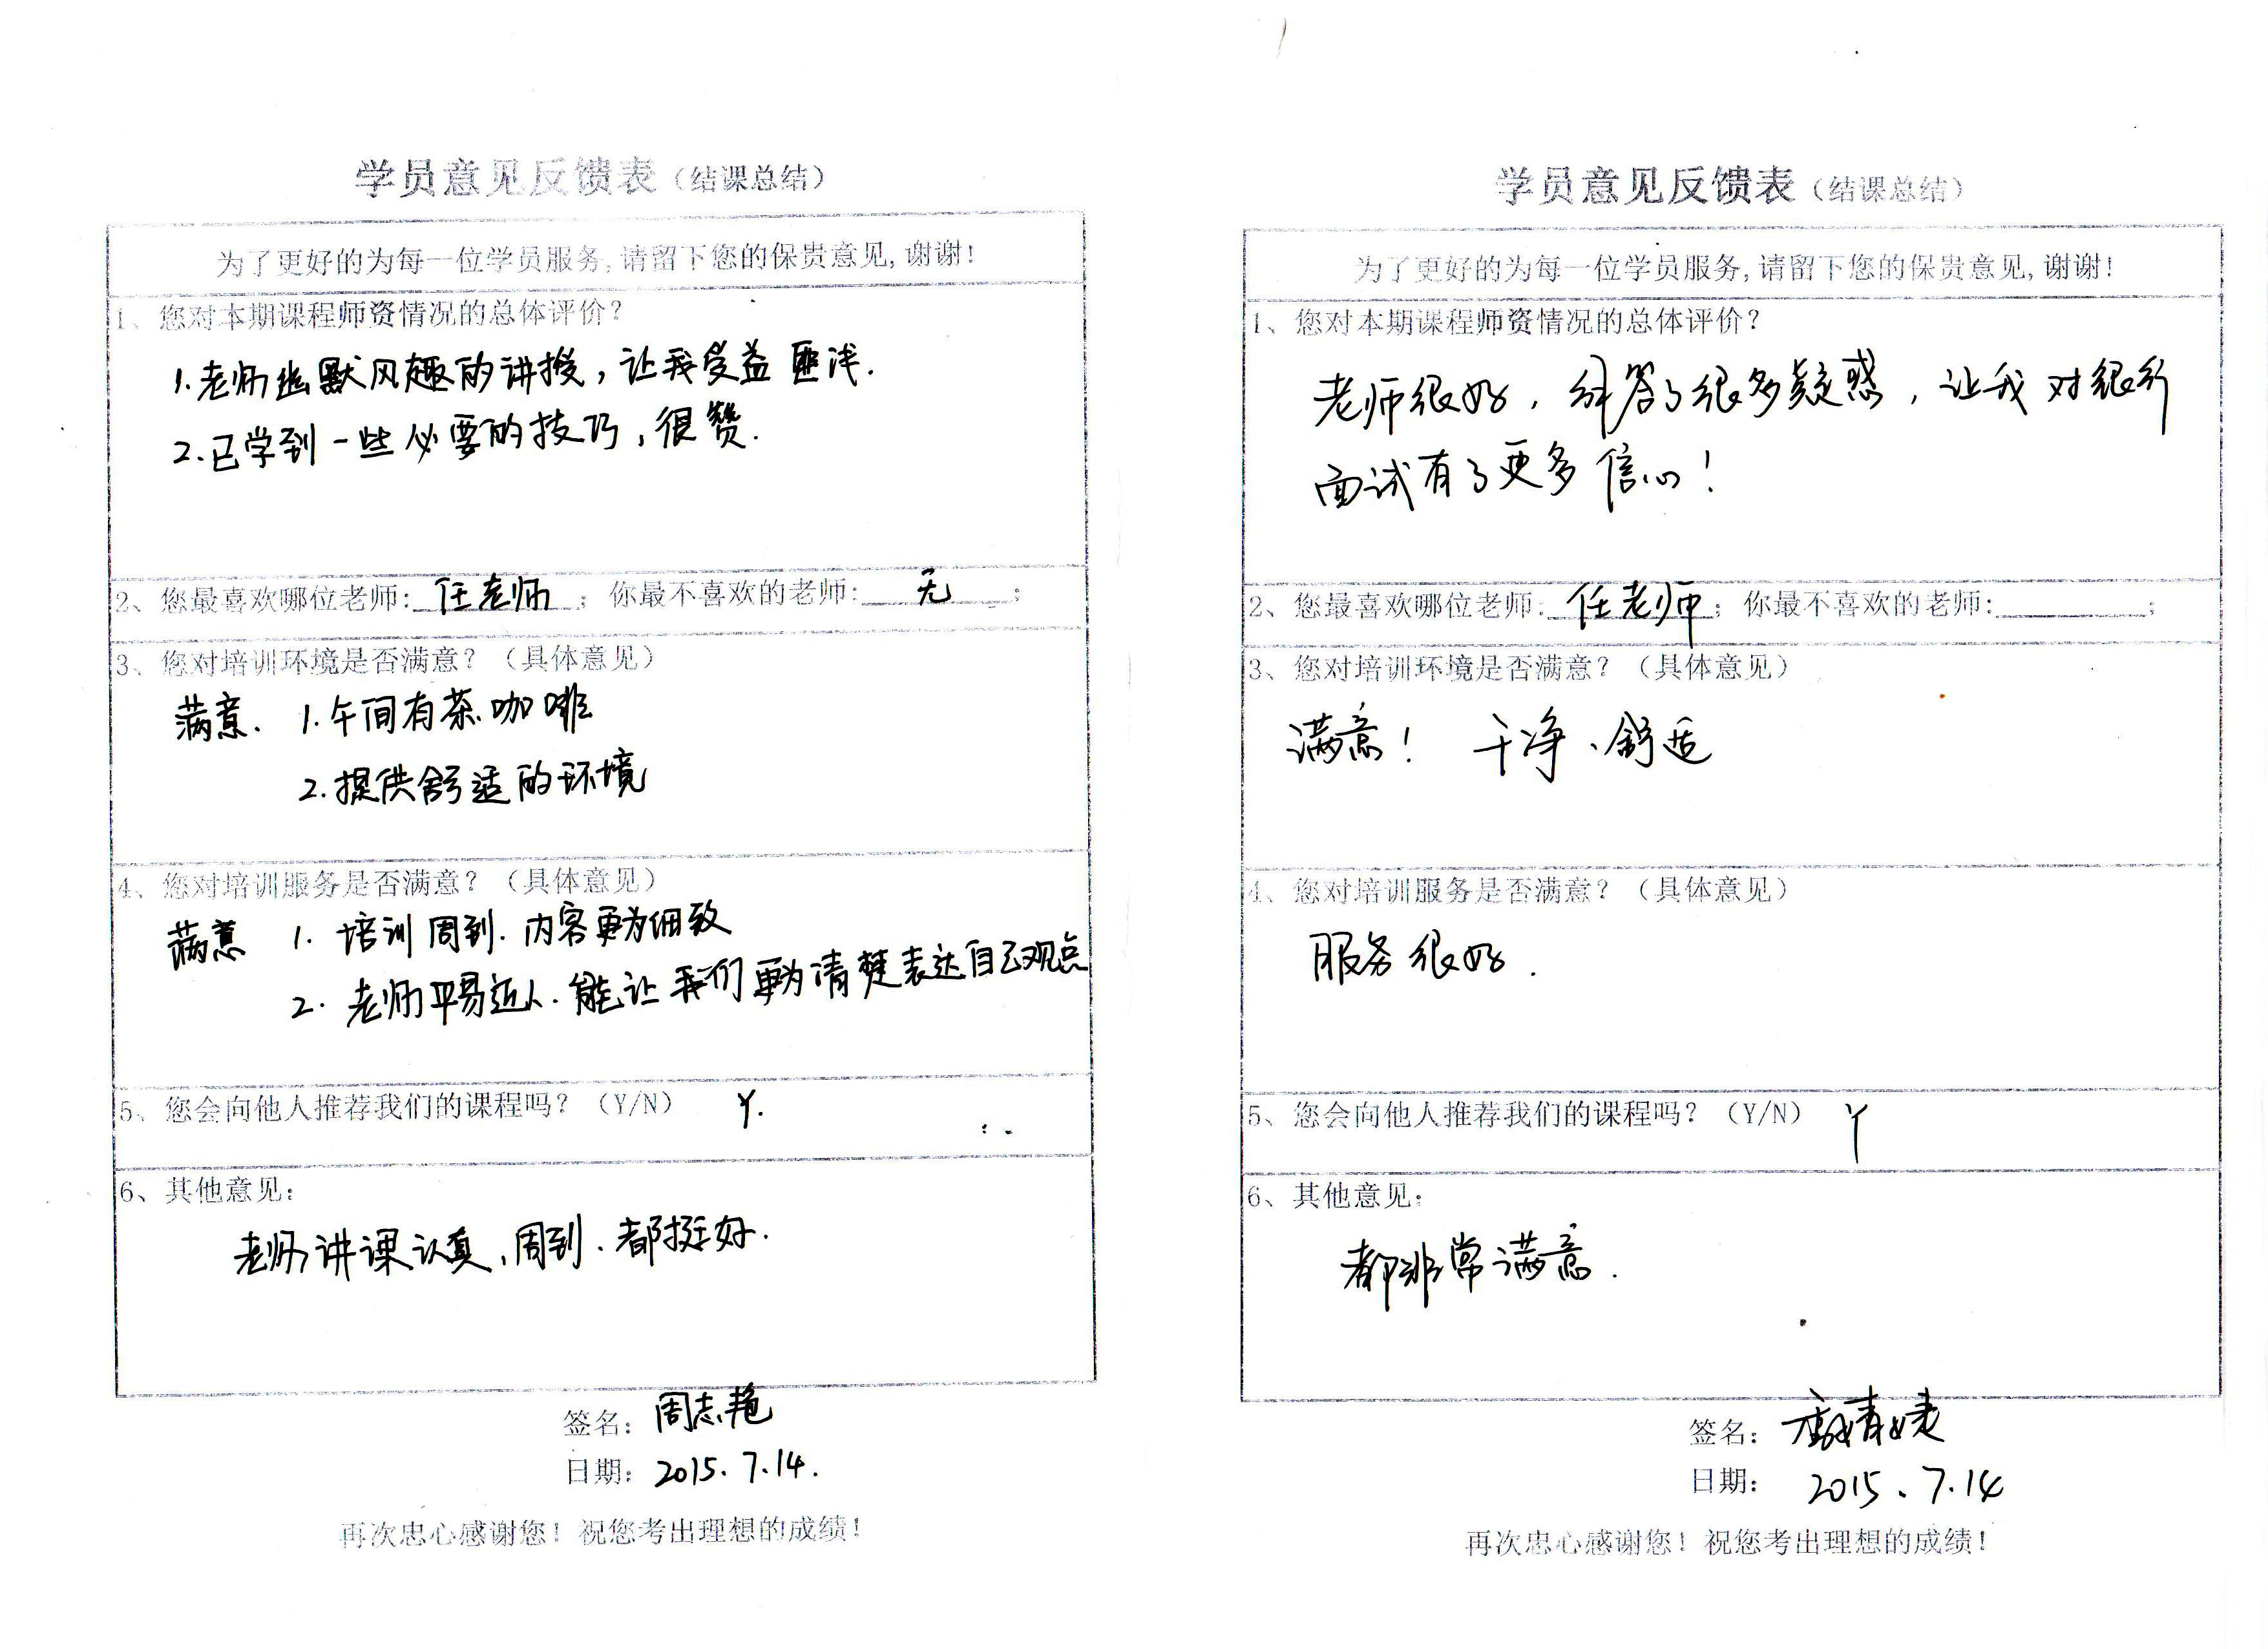 学员意见反馈表（结课总结）
为了更好的为每一位学员服务,请留下您的保贵意见,谢谢!
1、您对本期课程师资情况的总体评价?
1.老师幽默风趣的讲授，让我受益匪浅.
2.已学到一些必要的技巧，很赞.
2、您最喜欢哪位老师:任老师；你最不喜欢的老师:无；
3、您对培训环境是否满意?（具体意见）
满意. 1.午间有茶.咖啡
2.提供舒适的环境
4、您对培训服务是否满意?（具体意见）
满意 1. 培训周到.内容更为细致
2. 老师平易近人.能让我们更为清楚表达自己观点
5、您会向他人推荐我们的课程吗?（Y/N） Y.
6、其他意见:
老师讲课认真、周到.都挺好.
签名: 周志艳
日期: 2015.7.14.
再次忠心感谢您! 祝您考出理想的成绩!
学员意见反馈表（结课总结）
为了更好的为每一位学员服务,请留下您的保贵意见,谢谢!
1、您对本期课程师资情况的总体评价?
老师很好，解答了很多疑惑，让我对银行
面试有了更多信心！
2、您最喜欢哪位老师:任老师；你最不喜欢的老师:；
3、您对培训环境是否满意?（具体意见）
满意！ 干净、舒适
4、您对培训服务是否满意?（具体意见）
服务很好.
5、您会向他人推荐我们的课程吗?（Y/N） Y
6、其他意见:
都非常满意.
签名:
日期: 2015.7.14
再次忠心感谢您! 祝您考出理想的成绩!